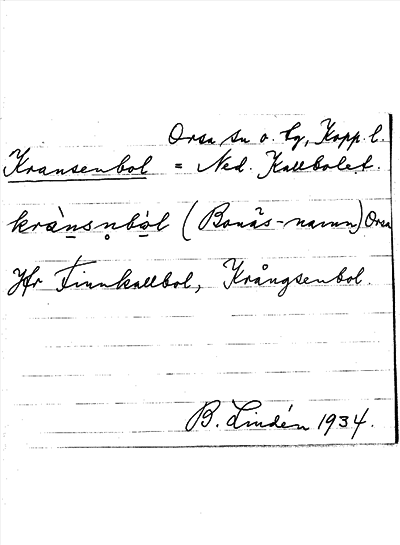 Orsa sn o. by, Kopp. l.
Kransenbol = Ned. Kallbolet.
krànsṇbòl (Bonäs-namn) Orsa
Jfr Finnkallbol, Krångsenbol.
B. Lindén 1934.